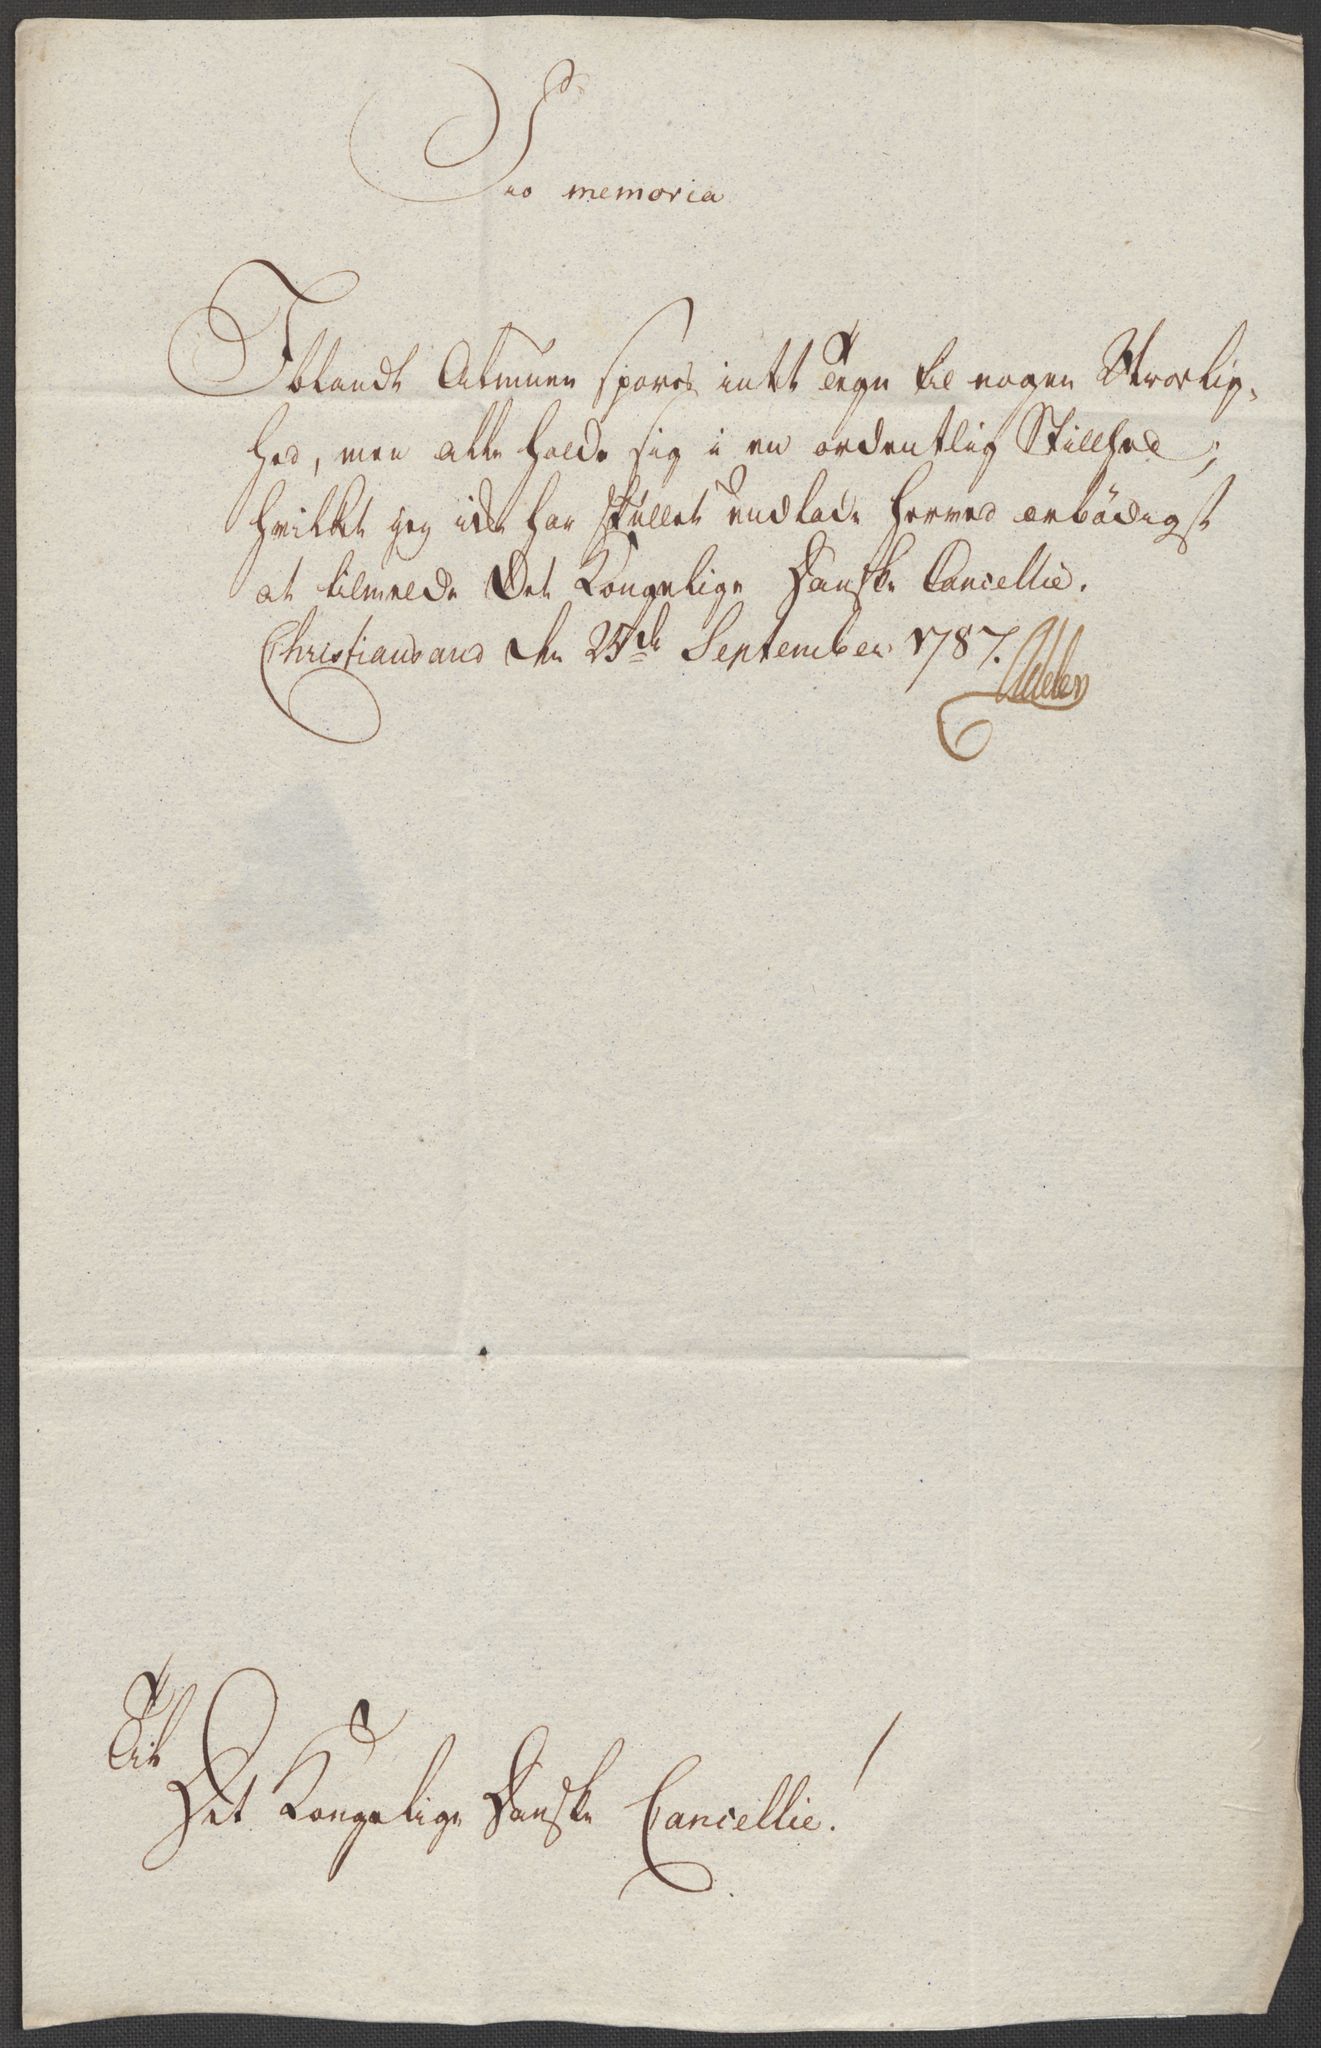 Pro memoria
Iblandt Almuen spores intet Tegn til nogen Uroelig-
hed, men alle holde sig i en ordentlig Stillhed;
hvilket jeg ikke har skullet undlade herved ærbödigst
at tilmelde Det Kongelige Danske Cancellie.
Christiansand den 25de September 1787.
Adeler
Til
Det Kongelige Danske Cancellie!